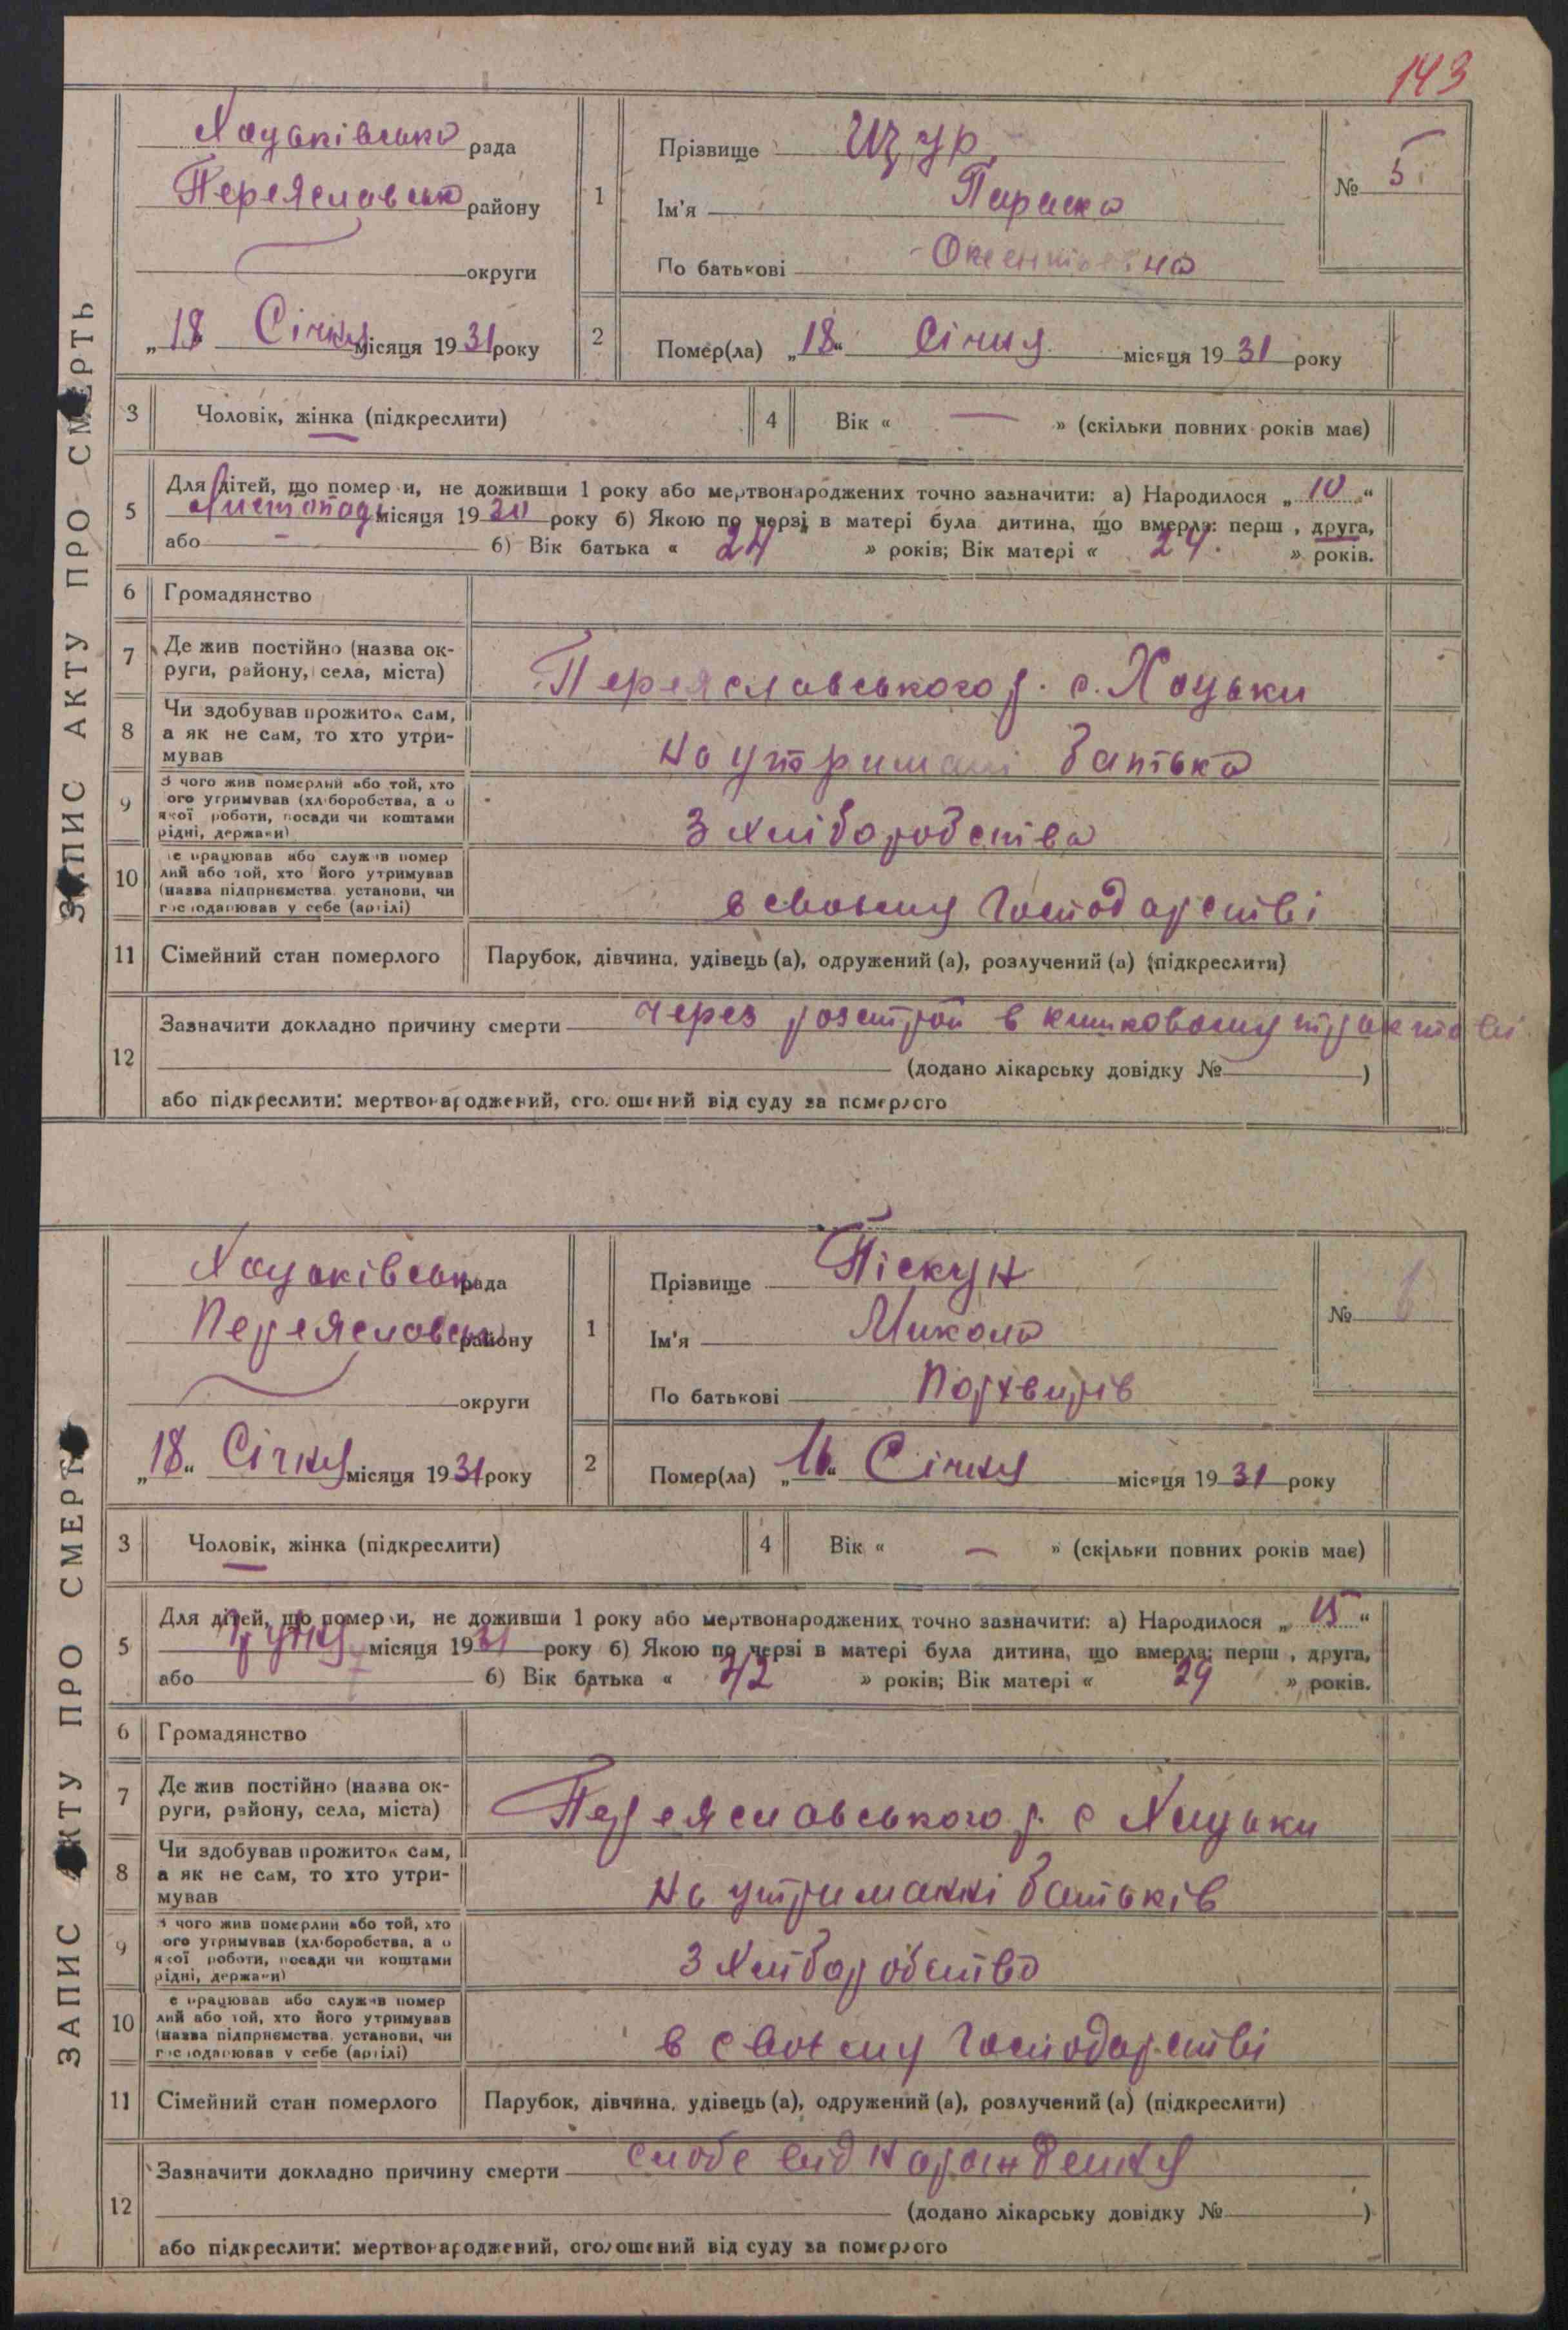 143
ЗАПИС АКТУ ПРО СМЕРТЬ
Хоцьківська рада
Переяславськ району
округи
„18“ Січня місяця 1931 року
1
Прізвище Щур
Ім'я Параска
По батькові
№ 5
2
Помер(ла) „18“ Січня місяця 1931 року
3 Чоловік, жінка (підкреслити)
4 Вік « — » (скільки повних років має)
5
Для дітей, що померли, не доживши 1 року або мертвонароджених точно зазначити: а) Народилося „10“
Листопада місяця 1930 року б) Якою по черзі в матері була дитина, що вмерла: перш , друга,
або — б) Вік батька « 24 » років; Вік матері « 24 » років.
6 Громадянство
7 Де жив постійно (назва ок-
руги, району, села, міста)
Переяславського р. с. Хоцьки
8 Чи здобував прожиток сам,
а як не сам, то хто утри-
мував
на утримані батька
9 З чого жив померлий або той, хто
ого утримував (хліборобства, а о
якої роботи, посади чи коштами
рідні, держави)
З хліборобства
10 е працював або служив помер
лий або той, хто його утримував
(назва підприємства установи, чи
господарював у себе (артілі)
в своєму господарстві
11 Сімейний стан померлого Парубок, дівчина, удівець (а), одружений (а), розлучений (а) (підкреслити)
12
Зазначити докладно причину смерти через розстрой в кишковому трактові
(додано лікарську довідку № )
або підкреслити: мертвонароджений, оголошений від суду за померлого
ЗАПИС АКТУ ПРО СМЕРТЬ
Хоцьківськ рада
Переяславськ району
округи
„18“ Січня місяця 1931 року
1
Прізвище Піскун
Ім'я Микола
По батькові Порхвирів
№ 6
2
Помер(ла) „16“ Січня місяця 1931 року
3 Чоловік, жінка (підкреслити)
4 Вік « — » (скільки повних років має)
5
Для дітей, що померли, не доживши 1 року або мертвонароджених точно зазначити: а) Народилося „15“
Грудня місяця 1931 року б) Якою по черзі в матері була дитина, що вмерла: перш , друга,
або б) Вік батька « 32 » років; Вік матері « 29 » років.
6 Громадянство
7 Де жив постійно (назва ок-
руги, району, села, міста)
Переяславського р. с Хоцьки
8 Чи здобував прожиток сам,
а як не сам, то хто утри-
мував
на утриманні батьків
9 З чого жив померлий або той, хто
ого утримував (хліборобства, а о
якої роботи, посади чи коштами
рідні, держави)
З хліборобства
10 е працював або служив помер
лий або той, хто його утримував
(назва підприємства установи, чи
господарював у себе (артілі)
в своєму господарстві
11 Сімейний стан померлого Парубок, дівчина, удівець (а), одружений (а), розлучений (а) (підкреслити)
12
Зазначити докладно причину смерти слабе від народження
(додано лікарську довідку № )
або підкреслити: мертвонароджений, оголошений від суду за померлого